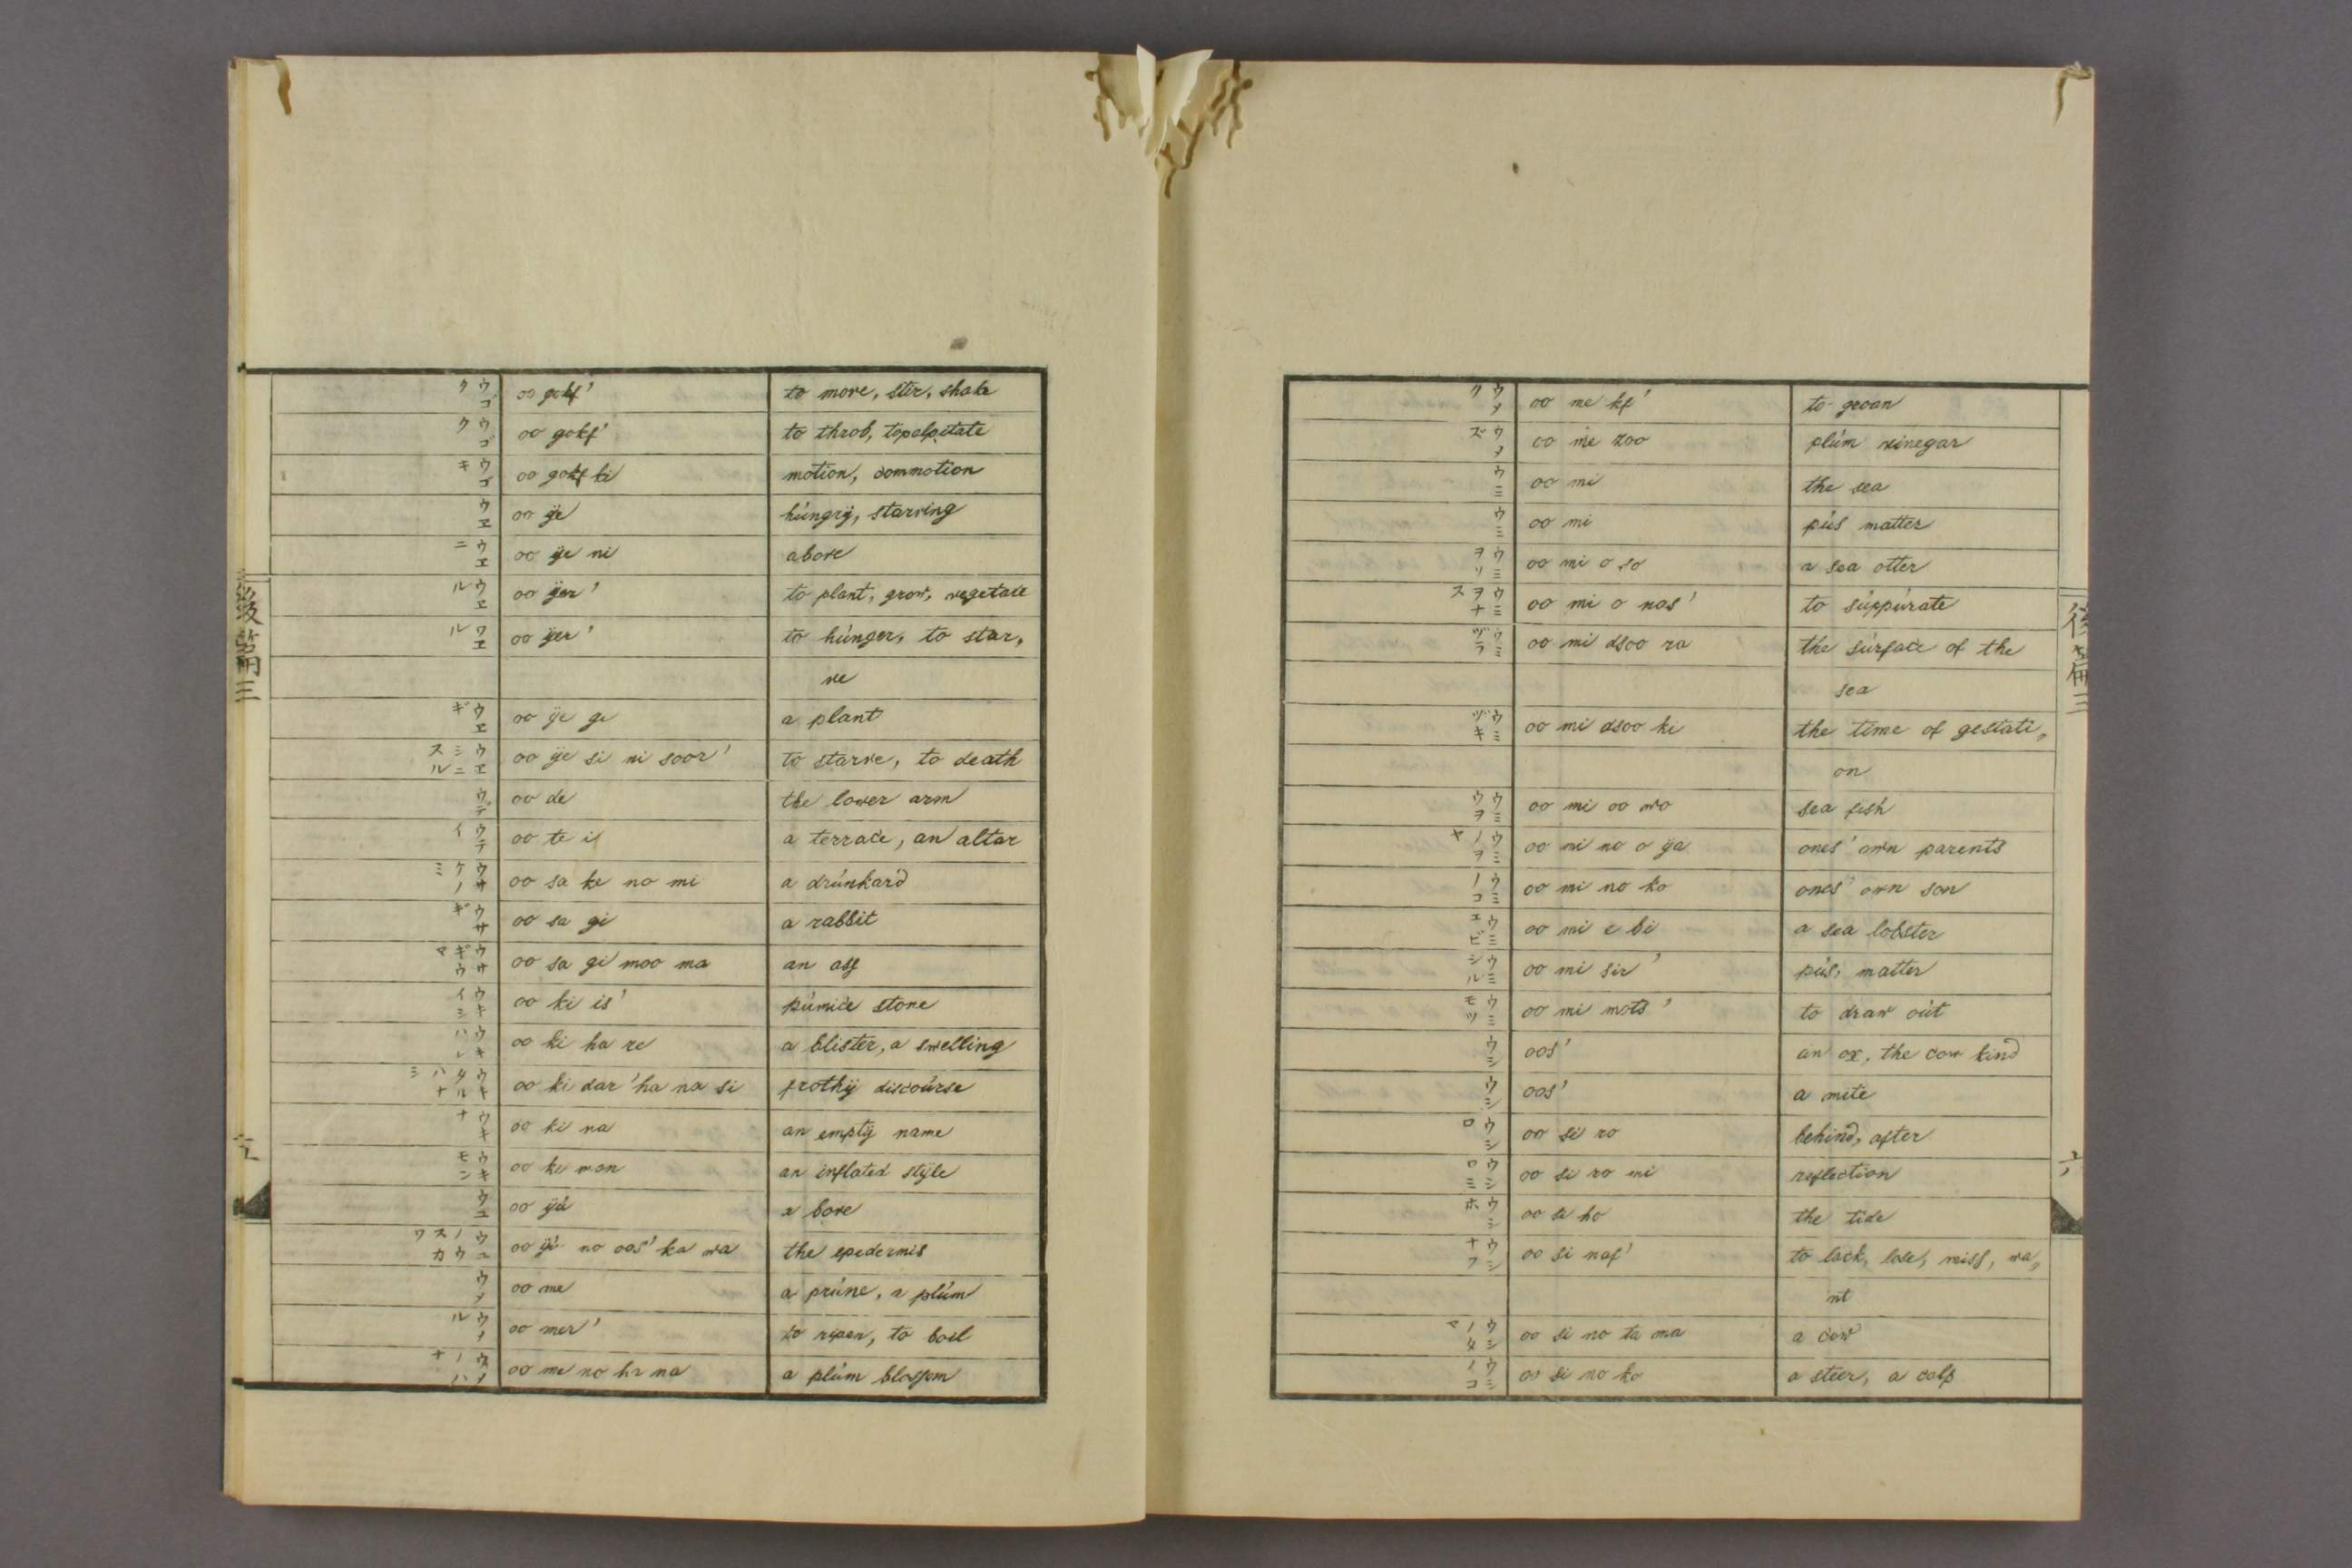 ウゴク oo gokf' to move, stir, shake
ウゴク oo gokf' to throb, topalpitate
ウゴキ oo gokf ki motion, commotion
ウヱ oo ÿe húngrÿ, starving
ウヱニ oo ÿe ni above
ウヱル oo ÿer' to plant, grow, vegetate
ウヱル oo ÿer' to húnger, to star,
ve
ウヱギ oo ÿe gi a plant
ウヱシニスル oo ÿe si ni soor' to starve, to death
ウデ oo de the lower arm
ウテイ oo te i a terrace, an altar
ウサケノミ oo sa ke no mi a drúnkard
ウサギ oo sa gi a rabbit
ウサギウマ oo sa gi moo ma an ass
ウキイシ oo ki is' púmice stone
ウキハレ oo ki ha re a blister, a swelling
ウキタルハナシ oo ki dar' ha na si frothÿ discoúrse
ウキナ oo ki na an emptÿ name
ウキモン oo ki mon an inflated stÿle
ウユ oo ÿú a bore
ウユノウスカワ oo ÿú no oos' ka wa the epidermis
ウメ oo me a prúne, a plúm
ウメル oo mer' to ripen, to boil
ウメノハナ oo me no ha na a plúm blossom
後篇三
ウメク oo me kf' to groan
ウメズ oo me zoo plúm vinegar
ウミ oo mi the sea
ウミ oo mi pús matter
ウミヲソ oo mi o so a sea otter
ウミヲナス oo mi o nas' to súppúrate
ウミヅラ oo mi dsoo ra the súrface of the
sea
ウミヅキ oo mi dsoo ki the time of gestati,,
on
ウミウヲ oo mi oo wo sea fish
ウミノヲヤ oo mi no o ÿa ones' own parents
ウミノコ oo mi no ko ones' own son
ウミエビ oo mi e bi a sea lobster
ウミシル oo mi sir' pús, matter
ウミモツ oo mi mots' to draw oút
ウシ oos' an ox, the cow kind
ウシ oos' a mite
ウシロ oo si ro behind, after
ウシロミ oo si ro mi reflection
ウシホ oo si ho the tide
ウシナフ oo si naf' to lack, lose, miss, wa,,
nt
ウシノタマ oo si no ta ma a cow
ウシノコ oo si no ko a steer, a calf
後篇三
六